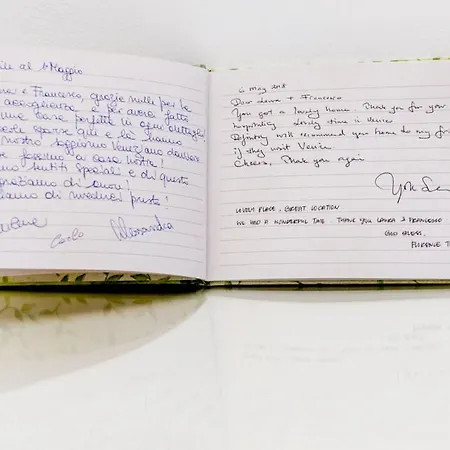 al 1 Maggio
e Francesco, grazie mille per la
accoglienza e per averci fatto
una casa perfetta in ogni dettaglio
sparse qui e là hanno
nostro soggiorno veneziano davvero
a casa nostra!
sentiti speciali e di questo
di cuore!
di rivederci presto!
Carlo Alessandra
6 May 2018
Dear Laura + Francesco
You got a lovely home. Thank you for your
hospitality. Lovely time in Venice
Definitely will recommend your home to my
if they visit Venice
Cheers. Thank you again
LOVELY PLACE, GREAT LOCATION
WE HAD A WONDERFUL TIME. THANK YOU LAURA & FRANCESCO
GOD BLESS.
FLORENCE T